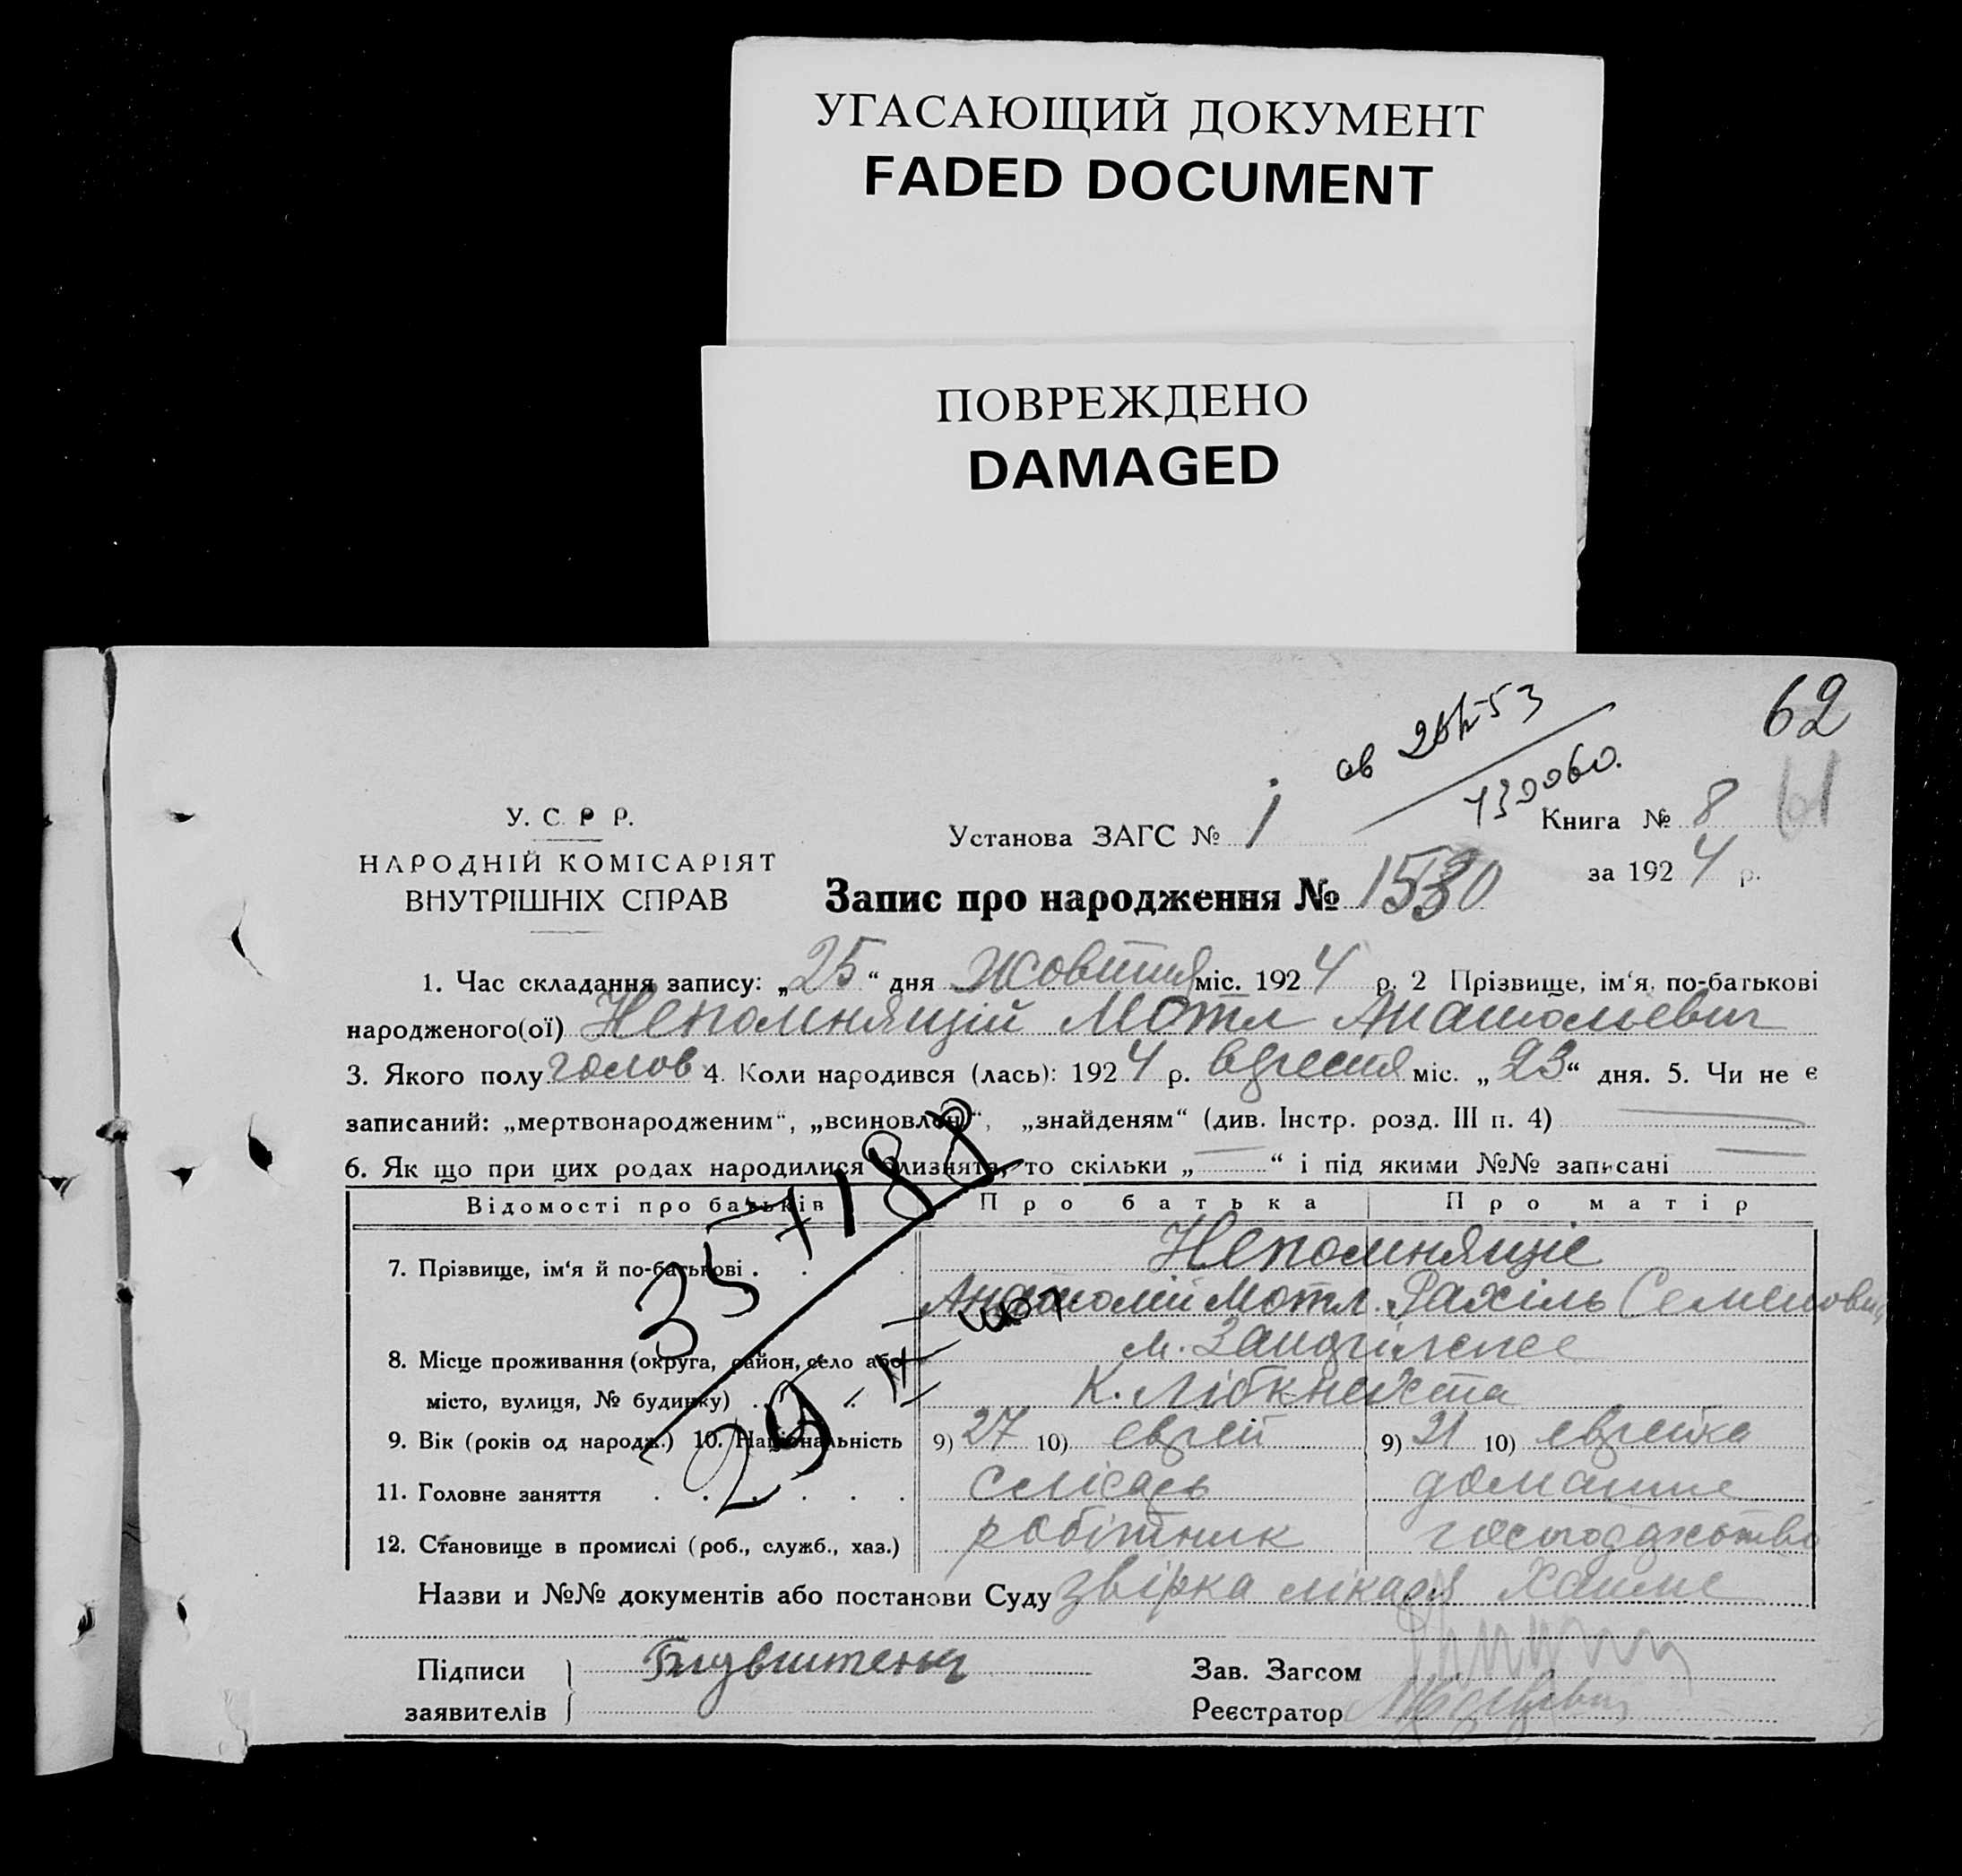 УГАСАЮЩИЙ ДОКУМЕНТ
FADED DOCUMENT
ПОВРЕЖДЕНО
DAMAGED
62
61
У. С. Р Р.
НАРОДНІЙ КОМІСАРІЯТ
ВНУТРІШНІХ СПРАВ
Установа ЗАГС № 1
Книга № 8
за 1924 р.
Запис про народження № 1530
1. Час складання запису: „25“ дня Жовтня міс. 1924 р. 2 Прізвище, ім‘я, по-батькові
народженого(ої) Непомнящій Мотл Анатольевич
3. Якого полу голов 4. Коли народився (лась): 1924 р. вересня міс. „23“ дня. 5. Чи не є
записаний: „мертвонародженим“, „всиновлен“, „знайденям“ (див. Інстр. розд. III п. 4)
6. Як що при цих родах народилися близнята, то скільки „ “ і під якими №№ записані
Відомості про батьків Про батька Про матір
7. Прізвище, ім‘я й по-батькові Непомнящіе
Анатолій Мотл. Рахіль Семеновн
8. Місце проживання (округа, район, село або
місто, вулиця, № будинку) К. Лібкнехта
9. Вік (років од народж.) 10. Національність 9) 27 10) еврей 9) 21 10) еврейка
11. Головне заняття слісарь домашнє
12. Становище в промислі (роб., служб., хаз.) робітник
Назви и №№ документів або постанови Суду звірка лікаря
35 7188
29
Підписи
заявителів
Зав. Загсом
Реєстратор